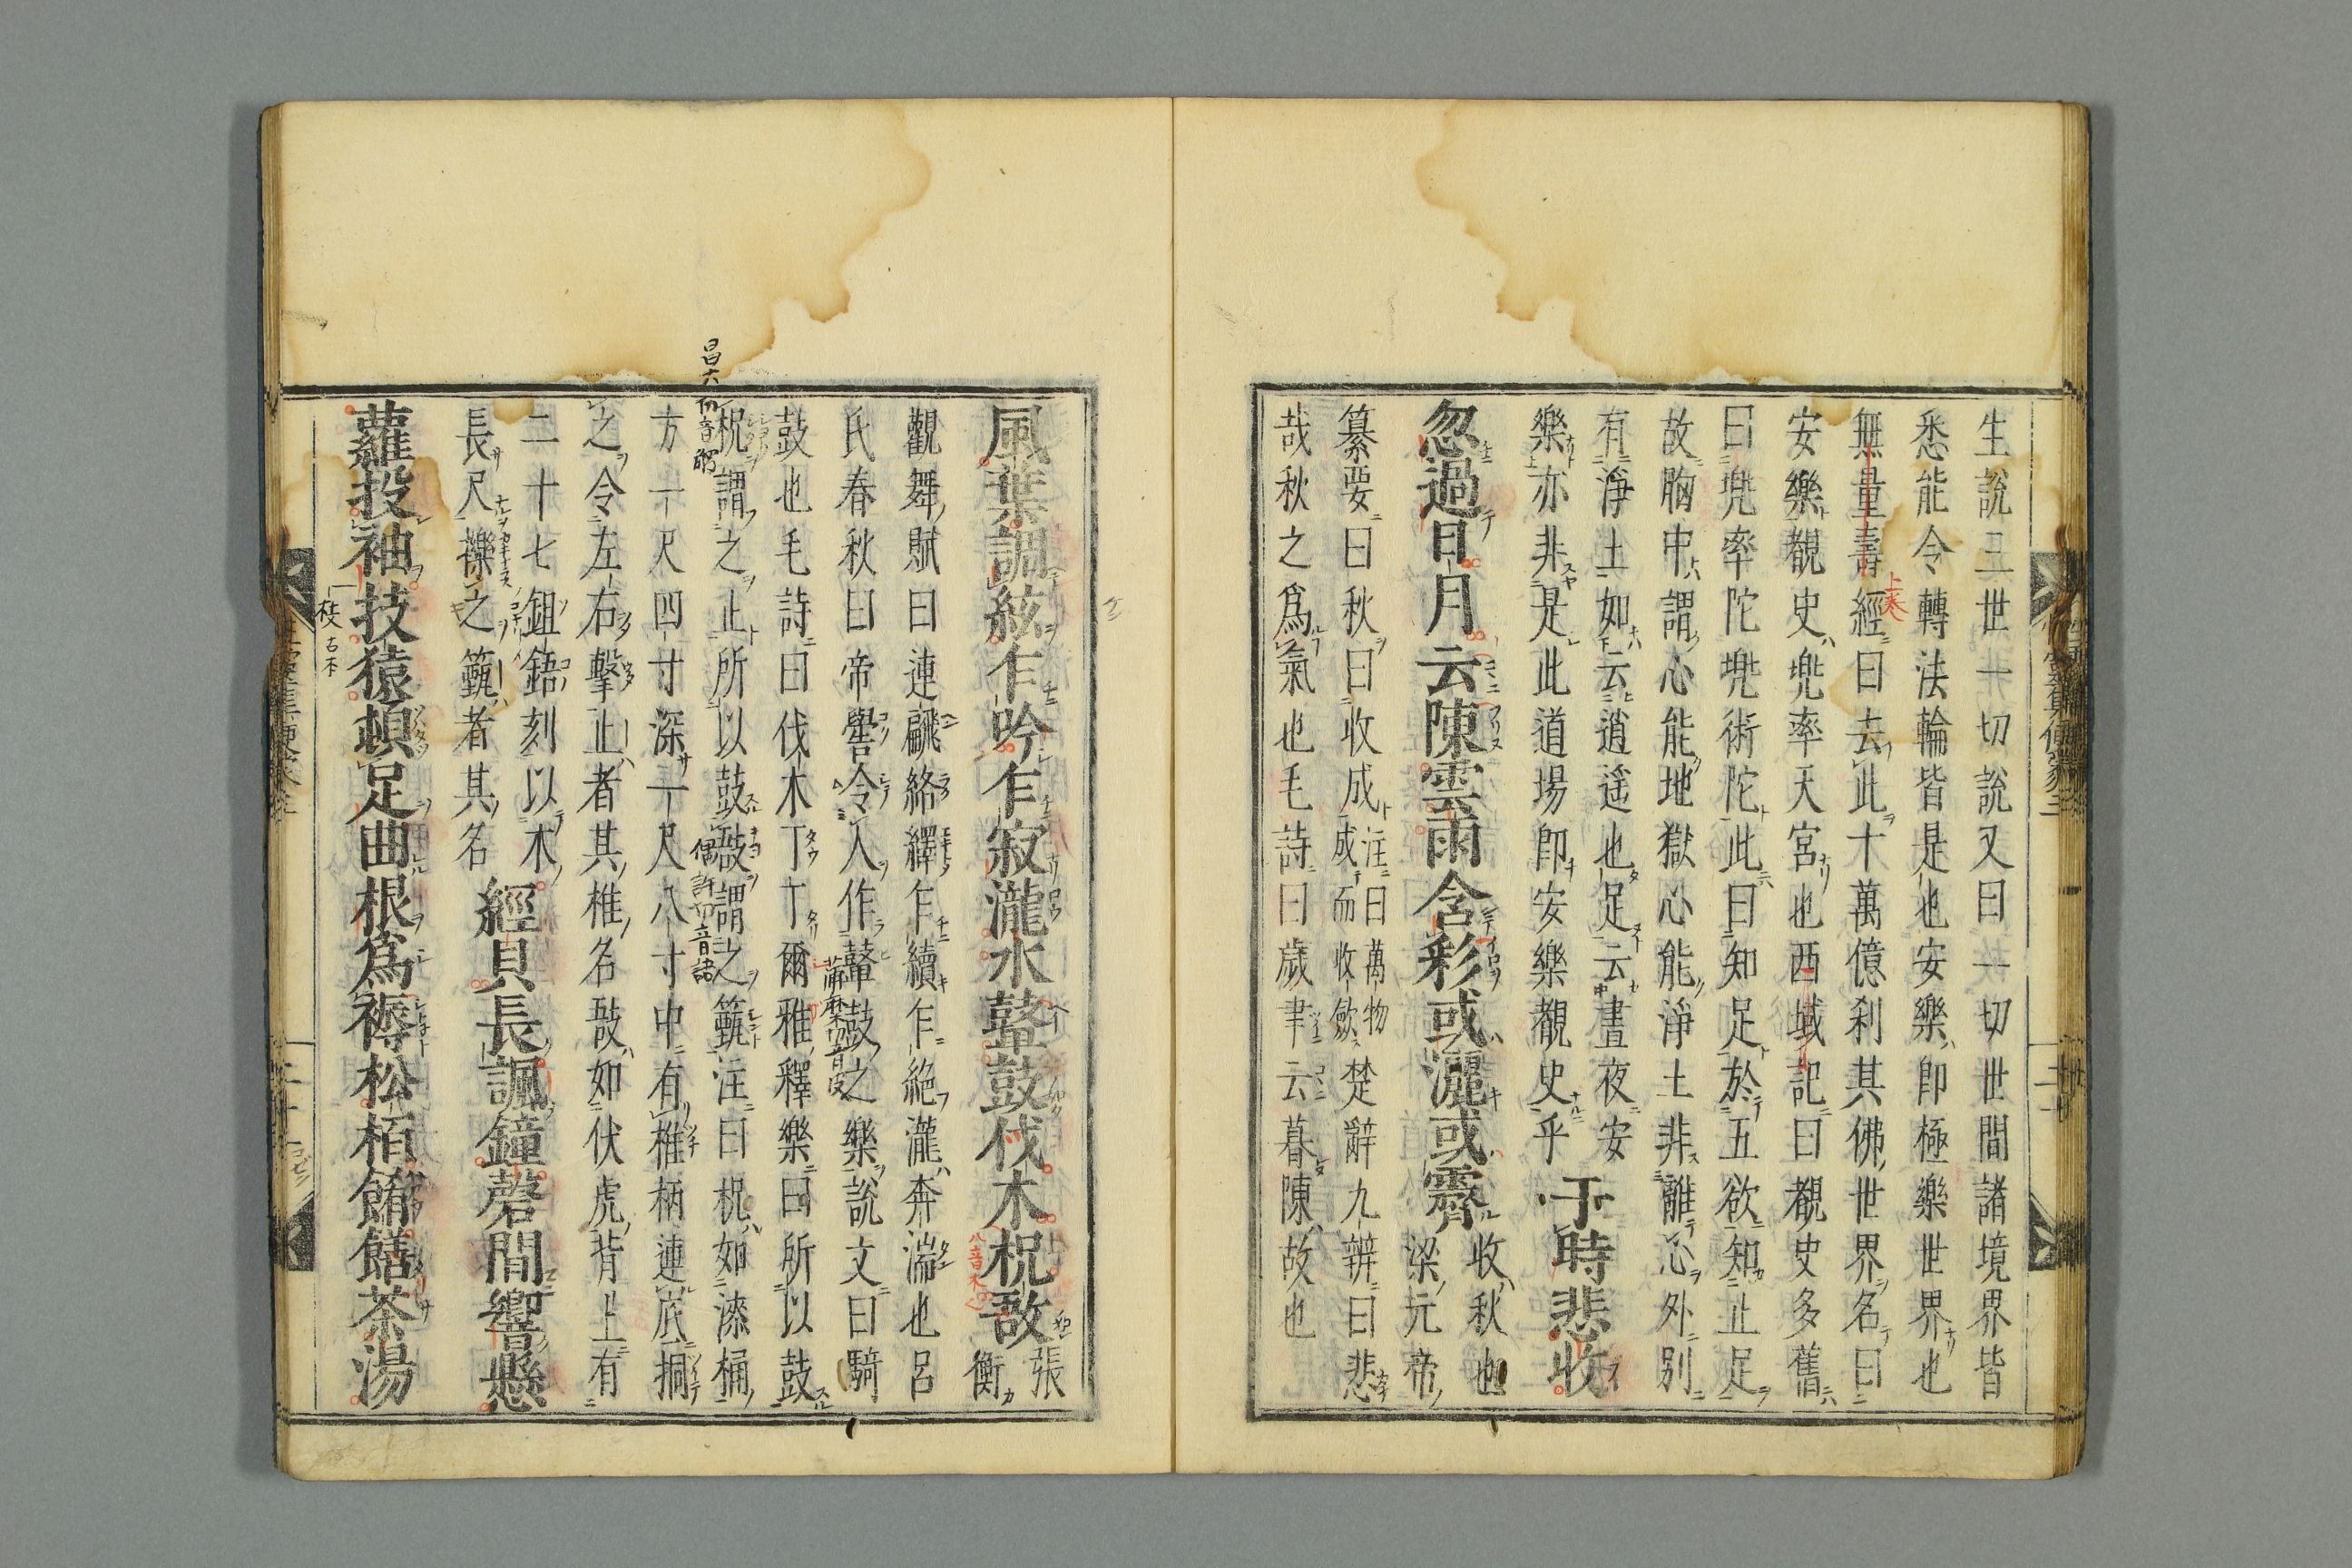 生說三世一切說又曰一切世間諸境界皆
悉能令轉法輪皆是也安樂即極樂世界也
無量壽經曰去此十萬億刹其佛世界名曰
安樂覩史兜率天宮也西域記曰覩史多舊
曰兜率陀兜術陀此曰知足於五欲知止足
故胸中謂心能地獄心能淨土非離心外別
有淨土如云逍遙也足云晝夜安
樂亦非是此道場即安樂覩史乎
于時悲收
收秋也
梁元帝
忽過日月云陳雲雨含彩或灑或霽
纂要曰秋曰收成
注曰萬物
成而收歛
楚辭九辨曰悲
哉秋之為氣也毛詩曰歲聿云暮陳故也
風葉調絃乍吟乍寂瀧水鼙鼓伐木柷敔
張
衡
觀舞賦曰連翩絡繹乍續乍絕瀧奔湍也呂
氏春秋曰帝嚳令人作鼙鼓之樂說文曰騎
鼓也毛詩曰伐木丁丁爾雅釋樂曰所以鼓
柷謂之止所以鼓敔謂之籈注曰柷如漆桶
方二尺四寸深一尺八寸中有椎柄連底挏
之令左右擊止者其椎名敔如伏虎背上有
二十七鉏鋙刻以木
長尺櫟之籈者其名
經貝長諷鐘磬間響懸
蘿投袖技猿頓足曲根為褥松栢餚饍茶湯
八音木
上巻